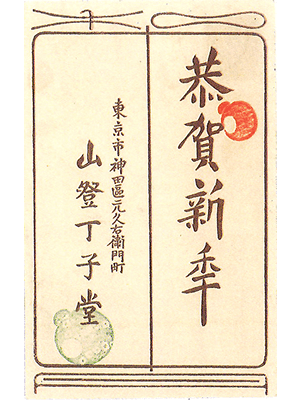 恭賀新秊
東京市神田區元久右衛門町
山登丁子堂